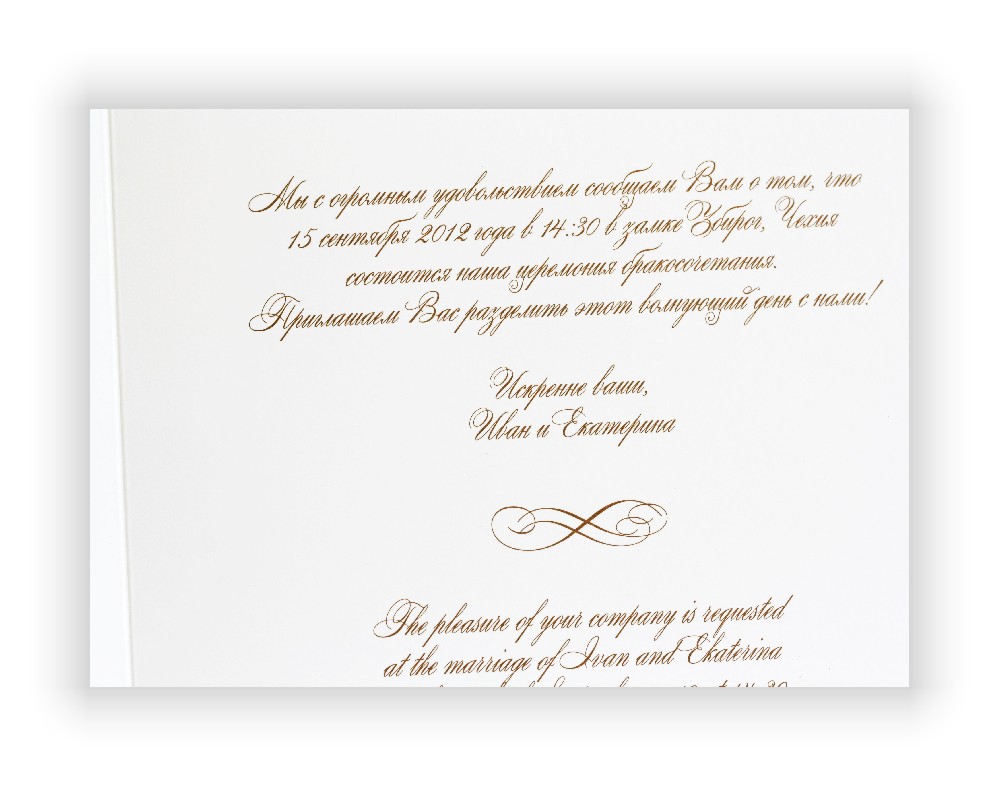 Мы с огромным удовольствием сообщаем Вам о том, что
15 сентября 2012 года в 14:30 в замке Збирог, Чехия
состоится наша церемония бракосочетания.
Приглашаем Вас разделить этот волнующий день с нами!
Искренне ваши,
Иван и Екатерина
The pleasure of your company is requested
at the marriage of Ivan and Ekaterina